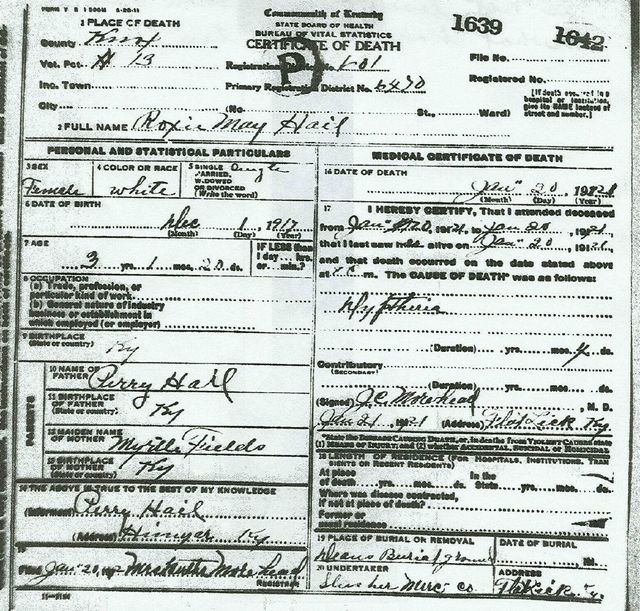 FORM V S 1 500M 5-20-11
Commonwealth of Kentucky
STATE BOARD OF HEALTH
BUREAU OF VITAL STATISTICS
CERTIFICATE OF DEATH
1639 1642
1 PLACE OF DEATH
County Knox
Vot. Pct # 13
Inc. Town
City
Registration
Primary Registration District No. 6470
(No. St., Ward)
File No.
Registered No.
[If death occurred in a
hospital or institution,
give its NAME instead of
street and number.]
P
2 FULL NAME Roxie May Hail
PERSONAL AND STATISTICAL PARTICULARS
3 SEX
Female
4 COLOR OR RACE
white
5 SINGLE Single
MARRIED,
WIDOWED
OR DIVORCED
(Write the word)
6 DATE OF BIRTH
Dec 1, 1917
(Month) (Day) (Year)
7 AGE
3 yrs. 1 mos. 20 ds.
IF LESS than
1 day... hrs.
or... min.?
8 OCCUPATION
(a) Trade, profession, or
particular kind of work
(b) General nature of industry
business or establishment in
which employed (or employer)
9 BIRTHPLACE
(State or country) Ky
PARENTS
10 NAME OF
FATHER Perry Hail
11 BIRTHPLACE
OF FATHER
(State or country) Ky
12 MAIDEN NAME
OF MOTHER Myrtle Fields
13 BIRTHPLACE
OF MOTHER
(State or country) Ky
14 THE ABOVE IS TRUE TO THE BEST OF MY KNOWLEDGE
(Informant) Perry Hail
(Address) Hinyer Ky
15
Filed Jan 20, 192 Mrs Morehead
REGISTRAR
11-1184
MEDICAL CERTIFICATE OF DEATH
16 DATE OF DEATH
Jan 20, 1921
(Month) (Day) (Year)
17 I HEREBY CERTIFY, That I attended deceased
from Jan 20, 1921, to Jan 20, 1921,
that I last saw her alive on Jan 20, 1921,
and that death occurred on the date stated above
at m. The CAUSE OF DEATH* was as follows:
Dyptheria
(Duration) yrs. mos. 4 ds.
Contributory
(SECONDARY)
(Duration) yrs. mos. ds.
(Signed) J.C. Morehead, M. D.
Jan 21, 1921 (Address) Flat Lick Ky.
*State the DISEASE CAUSING DEATH, or, in deaths from VIOLENT CAUSES state
(1) MEANS OF INJURY; and (2) whether ACCIDENTAL, SUICIDAL or HOMICIDAL
18 LENGTH OF RESIDENCE (FOR HOSPITALS, INSTITUTIONS, TRAN
SIENTS OR RECENT RESIDENTS)
At place In the
of death yrs. mos. ds. State yrs. mos. ds.
Where was disease contracted,
if not at place of death?
Former or
usual residence
19 PLACE OF BURIAL OR REMOVAL
Deans Burial ground
DATE OF BURIAL
192
20 UNDERTAKER
Slusher Merc. Co
ADDRESS
Flat Lick Ky.